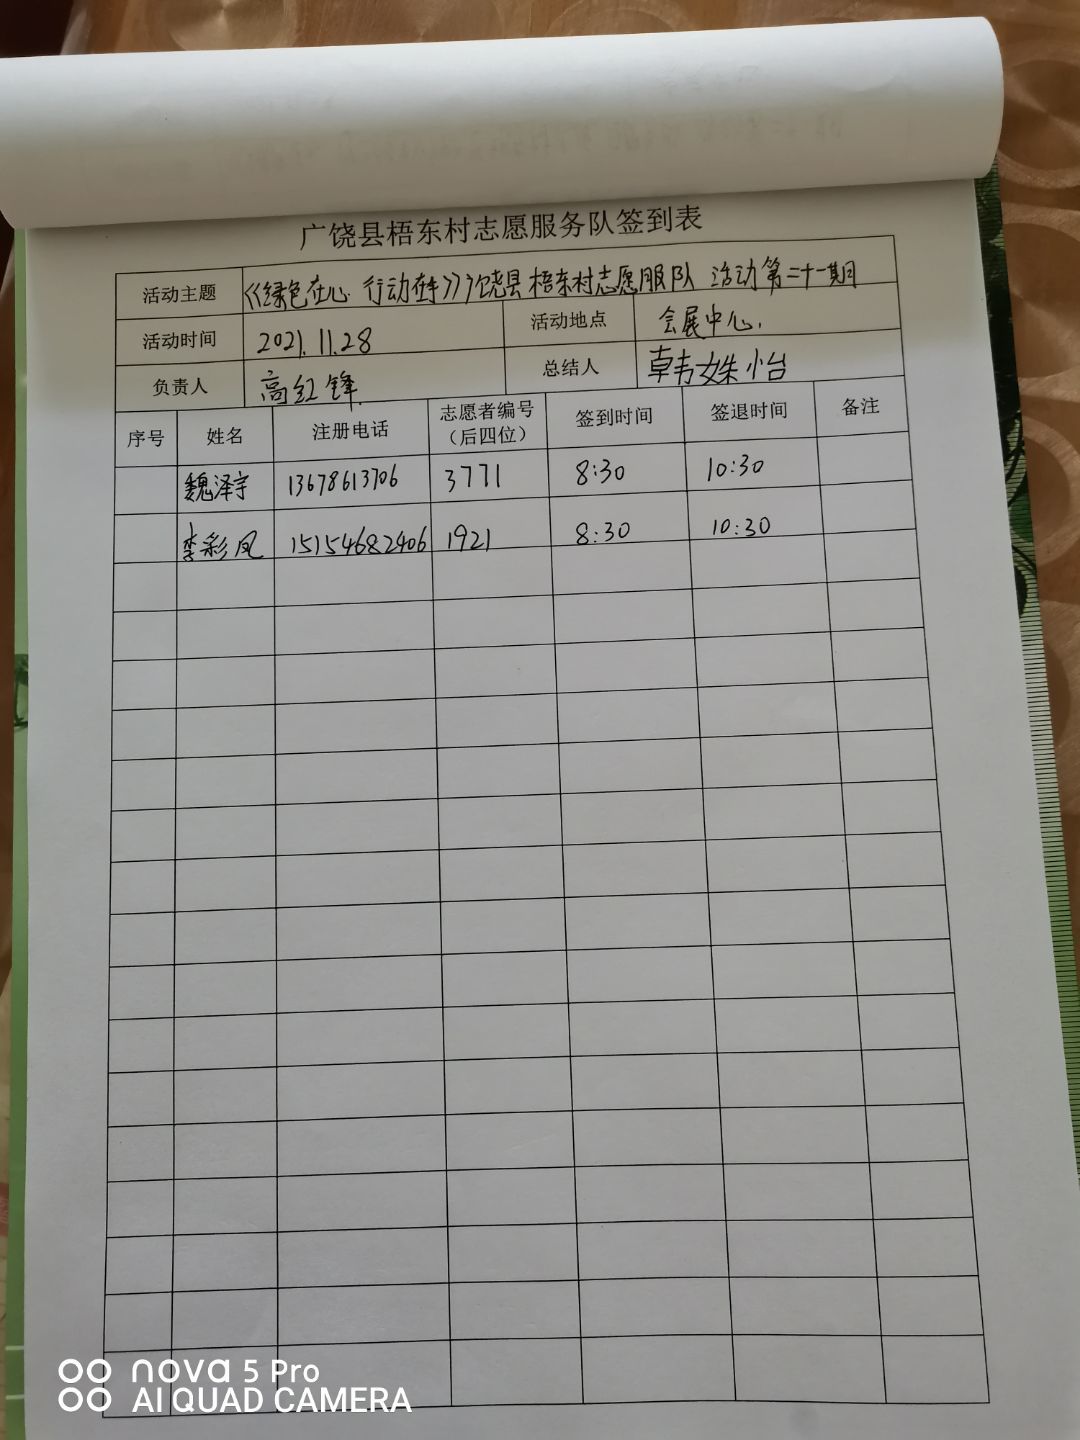 广饶县梧东村志愿服务队签到表
活动主题 《绿色在心 行动在手》广饶县梧东村志愿服队 活动第二十一期
活动时间 2021.11.28 活动地点 会展中心.
负责人 高红锋 总结人 韩姝怡
序号 姓名 注册电话 志愿者编号（后四位） 签到时间 签退时间 备注
魏泽宇 13678613706 3771 8:30 10:30
李彩凤 15154682406 1921 8:30 10:30
nova 5 Pro
AI QUAD CAMERA